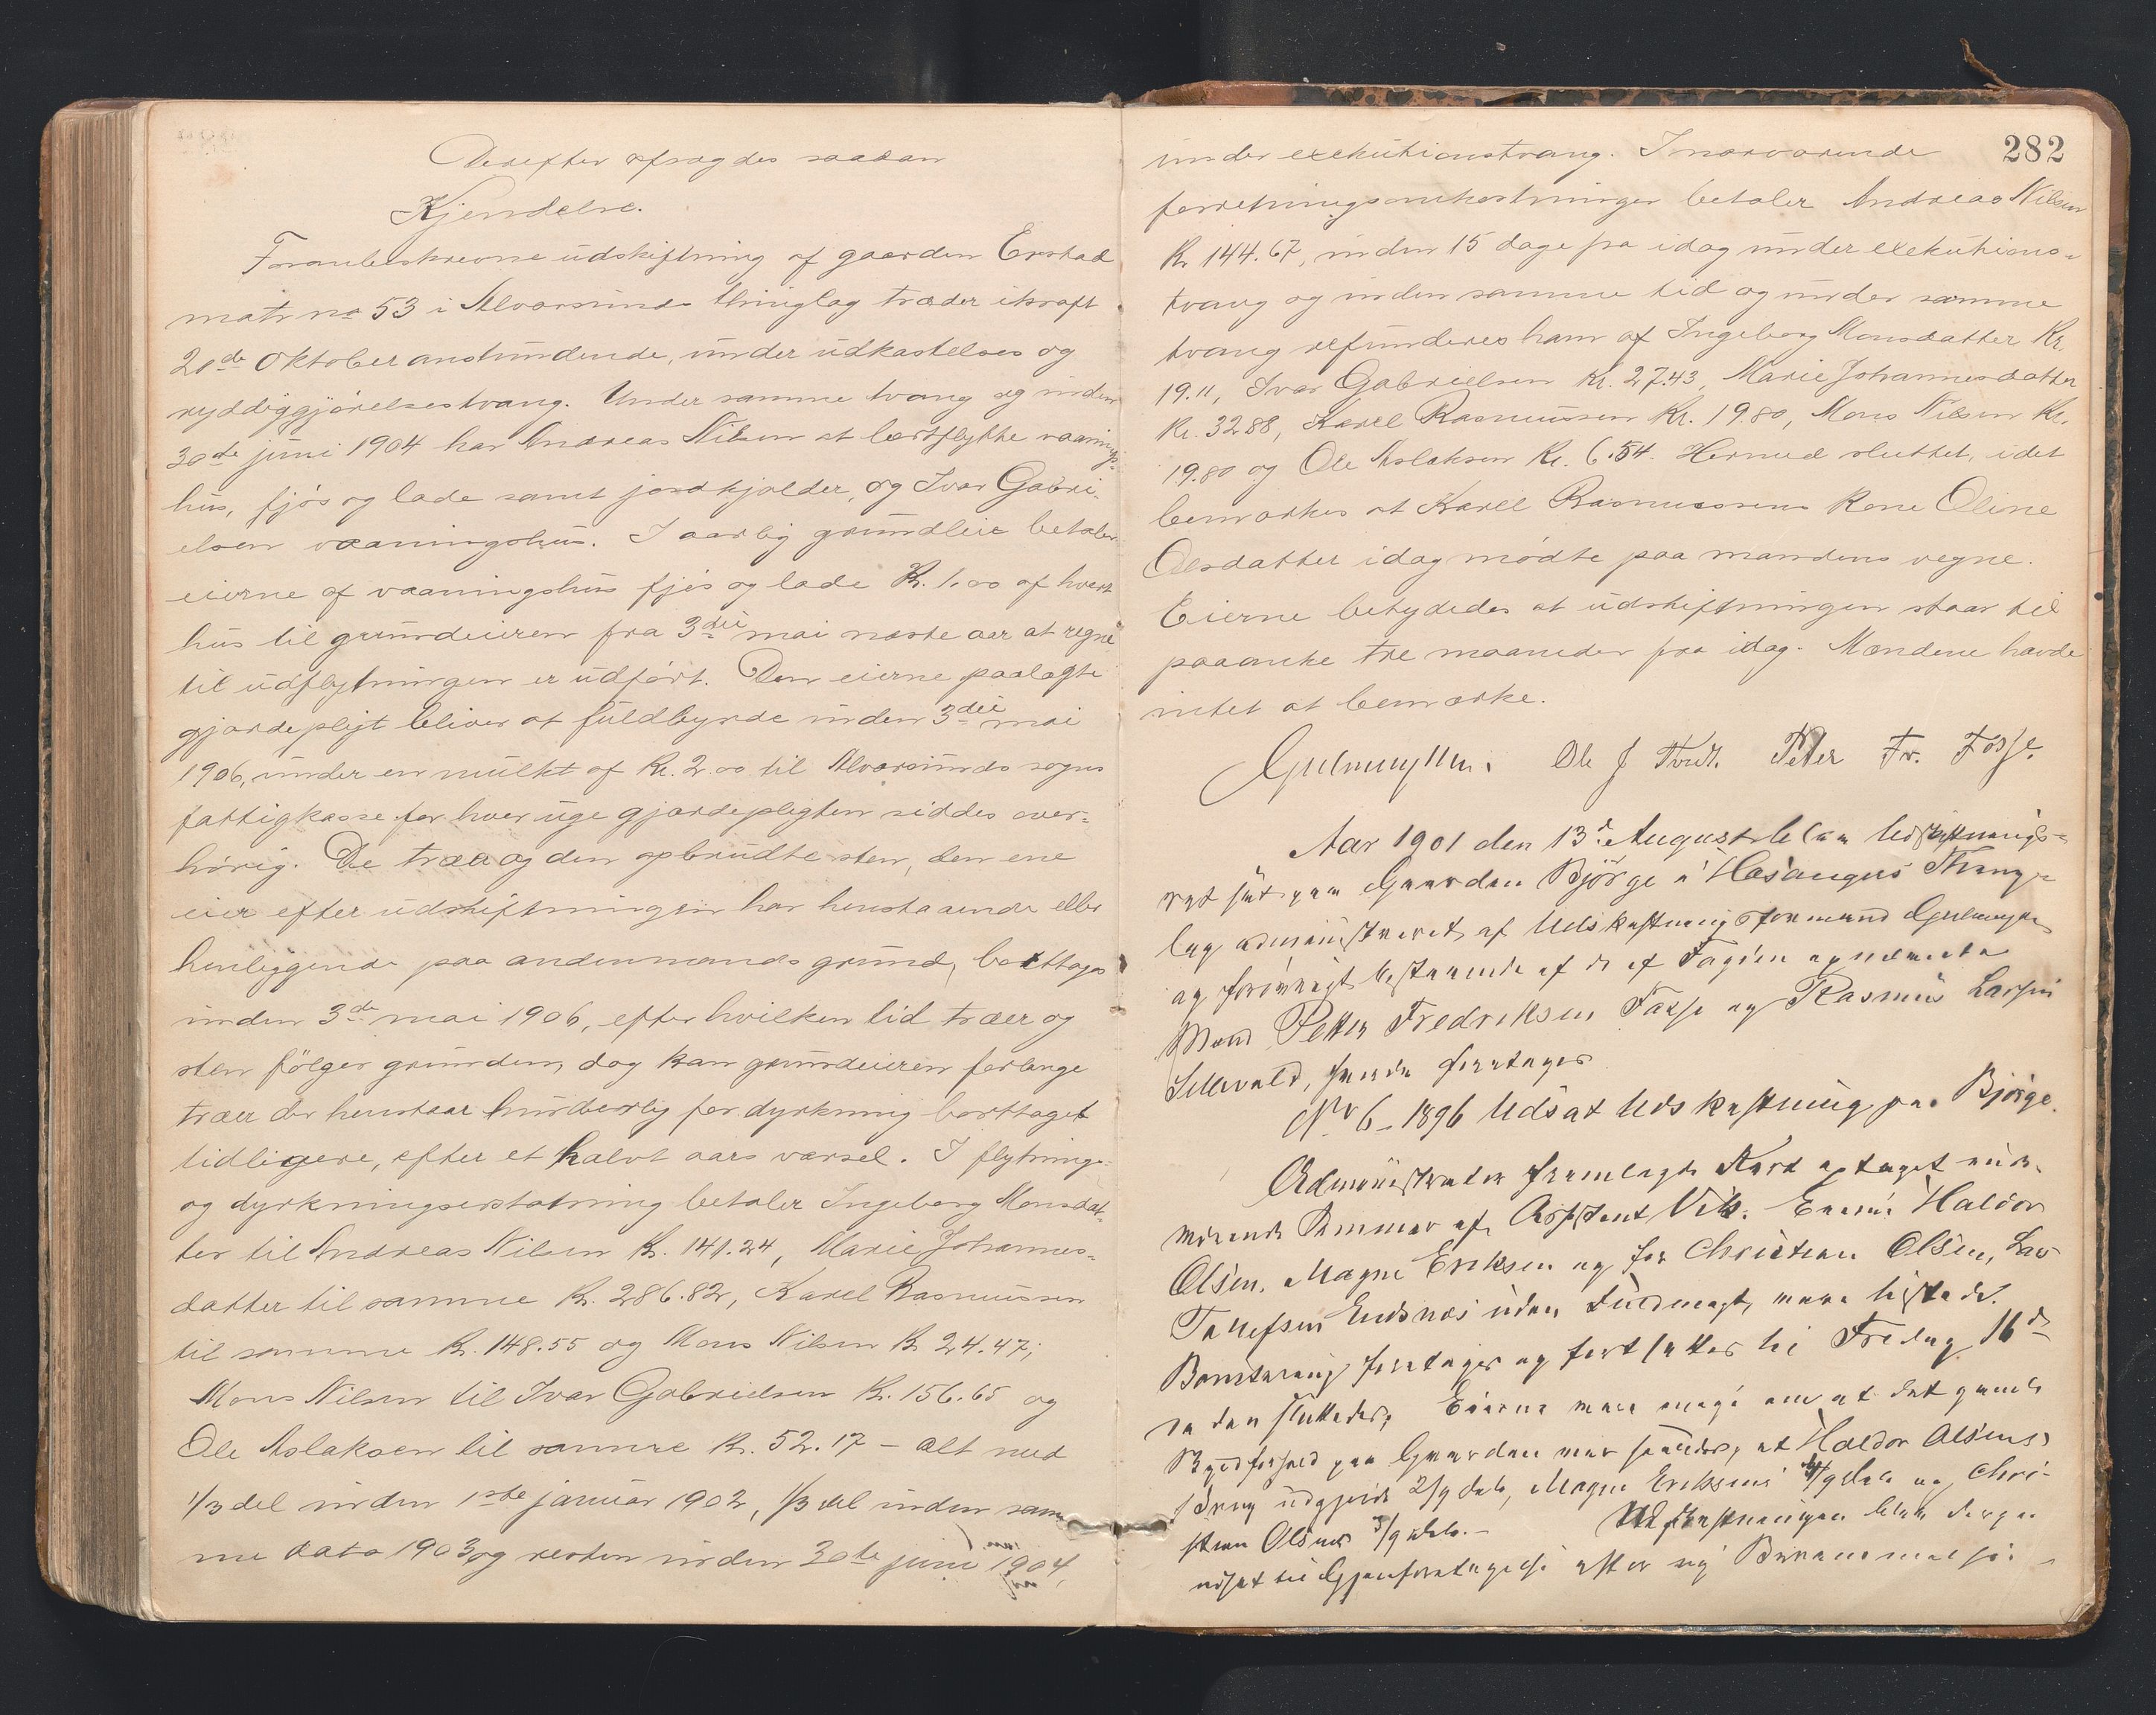 Derefter afsagdes saadan
Kjendelse.
Foranbeskrevne udskiftning af gaarden Erstad
matr no 53 i Alversunds thinglag træder ikraft
20de Oktober anstundende, under udkastelses og
ryddiggjørelsestvang. Under samme tvang og inden
30te juni 1904 har Andreas Nilsen at bortflytte vaanings-
hus, fjøs og lade samt jordkjelder, og Ivar Gabri-
elsen vaaningshus. I aarlig grundleie betaler
eierne af vaaningshus fjøs og lade Kr. 1.00 af hvert
hus til grundeieren fra 3die mai næste aar at regne
til udflytningen er udført. Den eierne paalagte
gjærdepligt bliver at fuldbyrde inden 3die mai
1906, under en mulkt af Kr. 2.00 til Alversunds sogns
fattigkasse for hver uge gjærdepligten siddes over-
hørig. De træer og den opbrudte sten, den ene
eier efter udskiftningen har henstaaende eller
henliggende paa andenmands grund, borttages
inden 3die mai 1906, efter hvilken tid træer og
sten følger grunden, dog kan grundeieren forlange
træer der henstaar hinderlig for dyrkning borttaget
tidligere, efter et halvt aars varsel. I flytnings-
og dyrkningserstatning betaler Ingeborg Monsdat-
ter til Andreas Nilsen Kr. 141.24, Marie Johannes-
datter til samme Kr. 286.82, Karel Rasmussen
til samme Kr. 148.55 og Mons Nilsen Kr 24.47;
Mons Nilsen til Ivar Gabrielsen Kr. 156.65 og
Ole Aslaksen til samme Kr. 52.17 – alt med
1/3 del inden 1ste januar 1902, 1/3 del inden sam-
me dato 1903 og resten inden 30te juni 1904,
282
under exekutionstvang. I nærværende
forretningsomkostninger betaler Andreas Nilsen
Kr 144.67, inden 15 dage fra idag under exekutions-
tvang og inden samme tid og under samme
tvang refunderes ham af Ingeborg Monsdatter Kr.
19.11, Ivar Gabrielsen Kr. 27.43, Marie Johannesdatter
Kr. 32.88, Karel Rasmussen Kr. 19.80, Mons Nilsen Kr.
19.80 og Ole Aslaksen Kr. 6.54. Hermed sluttet, idet
bemærkes at Karel Rasmussens kone Oline
Olsdatter idag mødte paa mandens vegne.
Eierne betydedes at udskiftningen staar til
paaanke tre maaneder fra idag. Mændene havde
intet at bemærke.
Ole J Peter Fr. Fosse.
Aar 1901 den 13de August blev Udskiftnings-
ret sat paa Gaarden Bjørge i Hosangers Thing-
lag administreret af Udskiftningsformand
og forøvrigt bestaaende af de af Fogden opnævnte
Mænd Petter Fredriksen Fosse og Rasmus Larsen
hvorda foretages
No 6 – 1896 Udsat Udskiftning paa Bjørge.
Administrator fremlagde Kart optaget nær-
værende Sommer af Assistent Vik. Eierne Haldor
Olsen, Magne Eriksen og for Christian Olsen, Lars
uden Fuldmagt, vare tilstede.
Bonitering foretages og fortsattes til Fredag 16de
da den sluttedes. Eierne vare enige om at det gamle
Bydforhold paa Gaarden var saaledes, at Haldor Olsens
Brug udgjorde 2/9 dele, Magne Eriksens 4/9 dele og Chri-
stian Olsens 3/9 dele. – Udskiftningen blev derpaa
udsat til Gjenforetagelse efter ny